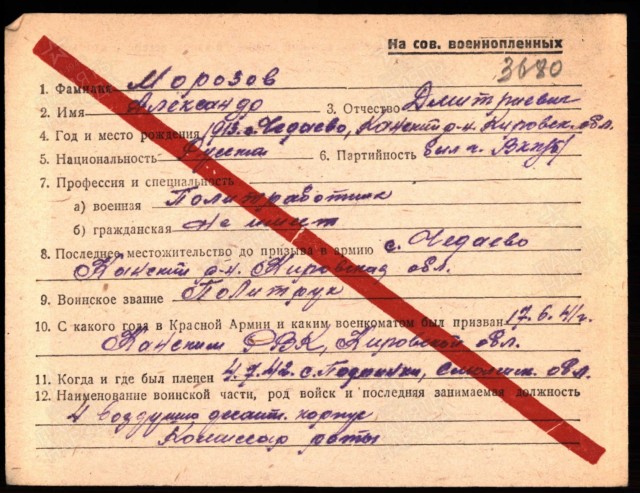 На сов. военнопленных
3680
1. Фамилия Морозов
2. Имя Александр 3. Отчество Дмитриевич
4. Год и место рождения 1913 г. Чедаево, р-н. Кировск. обл.
5. Национальность Русский 6. Партийность был ч. ВКП/б/
7. Профессия и специальность
а) военная Политработник
б) гражданская Не имеет
8. Последнее местожительство до призыва в армию с. Чедаево
р-н. Кировская обл.
9. Воинское звание Политрук
10. С какого года в Красной Армии и каким военкоматом был призван 17.6.41г.
РВК, Кировской обл.
11. Когда и где был пленен 4.7.42 с. Смоленск. обл.
12. Наименование воинской части, род войск и последняя занимаемая должность
4 воздушно десант. корпус
Комиссар роты